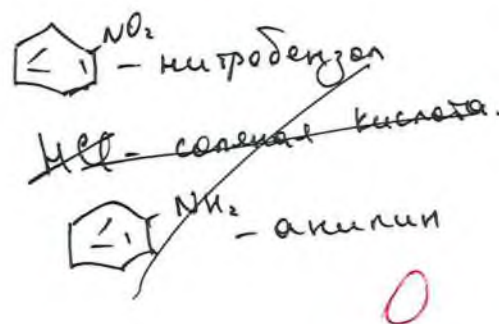 NO₂ – нитробензол
HCl – соляная кислота.
NH₂ – анилин
0